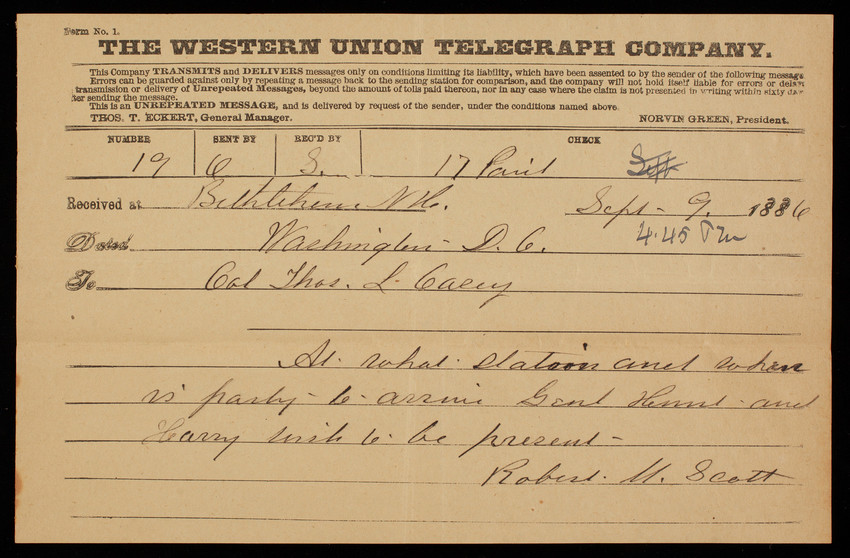 Form No. 1.
THE WESTERN UNION TELEGRAPH COMPANY.
This Company TRANSMITS and DELIVERS messages only on conditions limiting its liability, which have been assented to by the sender of the following message.
Errors can be guarded against only by repeating a message back to the sending station for comparison, and the company will not hold itself liable for errors or delays
transmission or delivery of Unrepeated Messages, beyond the amount of tolls paid thereon, nor in any case where the claim is not presented in writing within sixty days
sending the message.
This is an UNREPEATED MESSAGE, and is delivered by request of the sender, under the conditions named above.
THOS. T. ECKERT, General Manager. NORVIN GREEN, President.
NUMBER SENT BY REC'D BY CHECK
19 S. 17 Paid
Received at Bethlehem N.H. Sept 9. 1886
Dated Washington D.C. 4.45 Pm
To Col Thos. L. Casey
At what station and when
is party to arrive Genl Hunt and
Harry wish to be present
Robert M. Scott